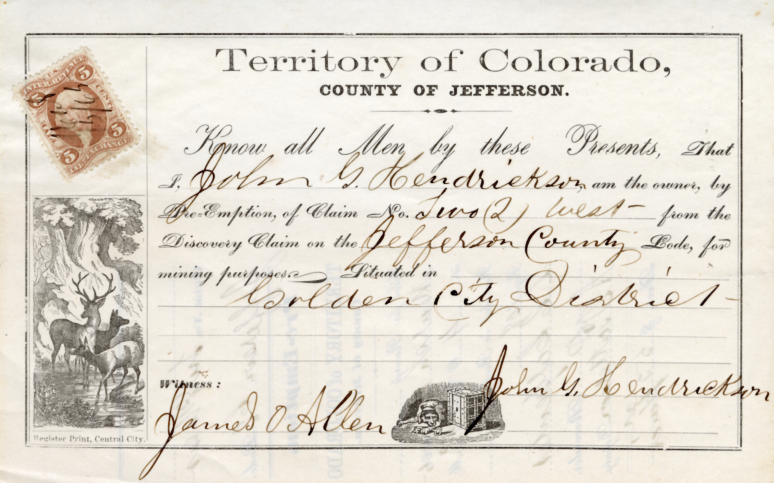 Territory of Colorado,
COUNTY OF JEFFERSON.
Know all Men by these Presents, That
I, John G. Hendrickson, am the owner, by
Pre-Emption, of Claim No. Two (2) West from the
Discovery Claim on the Jefferson County Lode, for
mining purposes. Situated in
Golden City District
Witness:
John G. Hendrickson
James O Allen
Register Print, Central City.
5
5
5
5